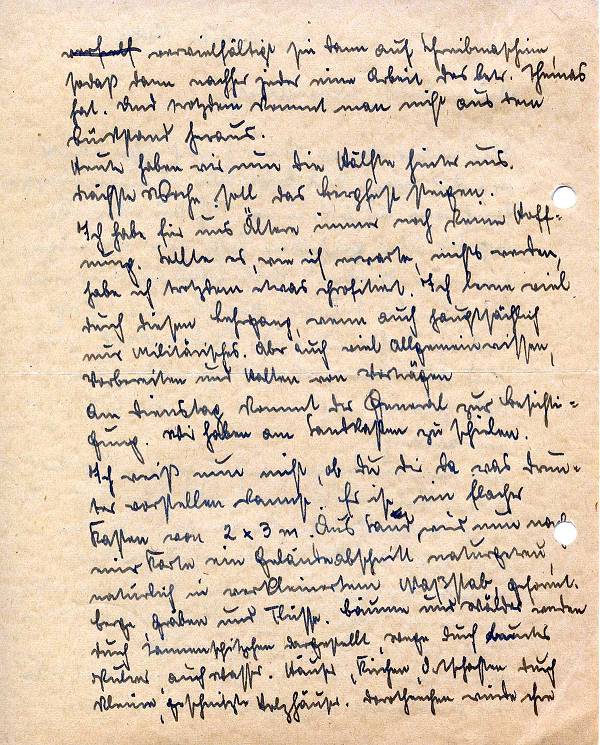 vervielfältigt sie dann auf Schreibmaschine,
sodaß dann nachher jeder eine Arbeit des betr. Themas
hat. Und trotzdem kommt man nicht aus dem
Rückstand heraus.
Heute haben wir nun die Hälfte hinter uns.
Nächste Woche soll das Bergfest steigen.
Ich habe für uns Ältere immer noch keine Hoff-
nung. Sollte es, wie ich erwarte, nichts werden,
habe ich trotzdem etwas profitiert. Ich lerne viel
durch diesen Lehrgang, wenn auch hauptsächlich
nur Militärisches. Aber auch viel Allgemeinwissen,
Vorbereiten und Halten von Vorträgen
Am Dienstag kommt der General zur Besichti-
gung. Wir haben am Sandkasten zu spielen.
Ich weiß nun nicht, ob Du Dir da was drun-
ter vorstellen kannst. Es ist ein flacher
Kasten von 2 x 3 m. Aus Sand wird nun nach
einer Karte ein Geländeabschnitt naturgetreu,
natürlich in verkleinertem Maßstab, geformt.
Berge, Gräben und Flüsse. Bäume und Wälder werden
durch Tannenspitzchen dargestellt, Wege durch buntes
Pulver, auch Wasser. Häuser, Kirchen, Ortschaften durch
kleine, geschnitzte Holzhäuser. Dortchen würde ihre